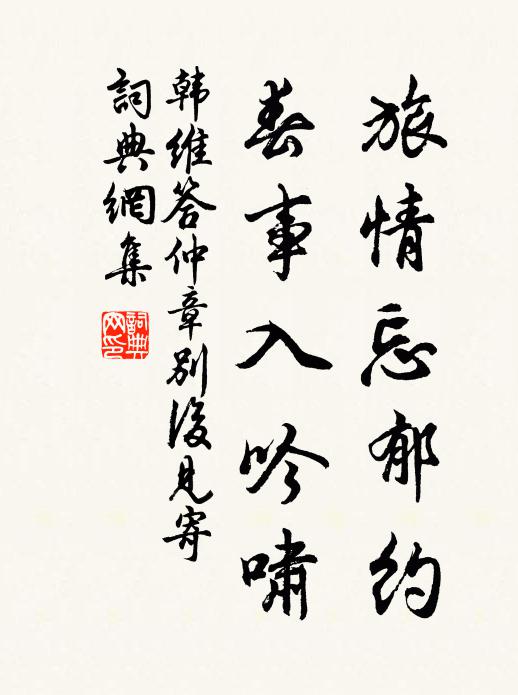 旅情忘郁约
春事入吟啸
韩维答仲章别后见寄
詞典網集
詞典网印